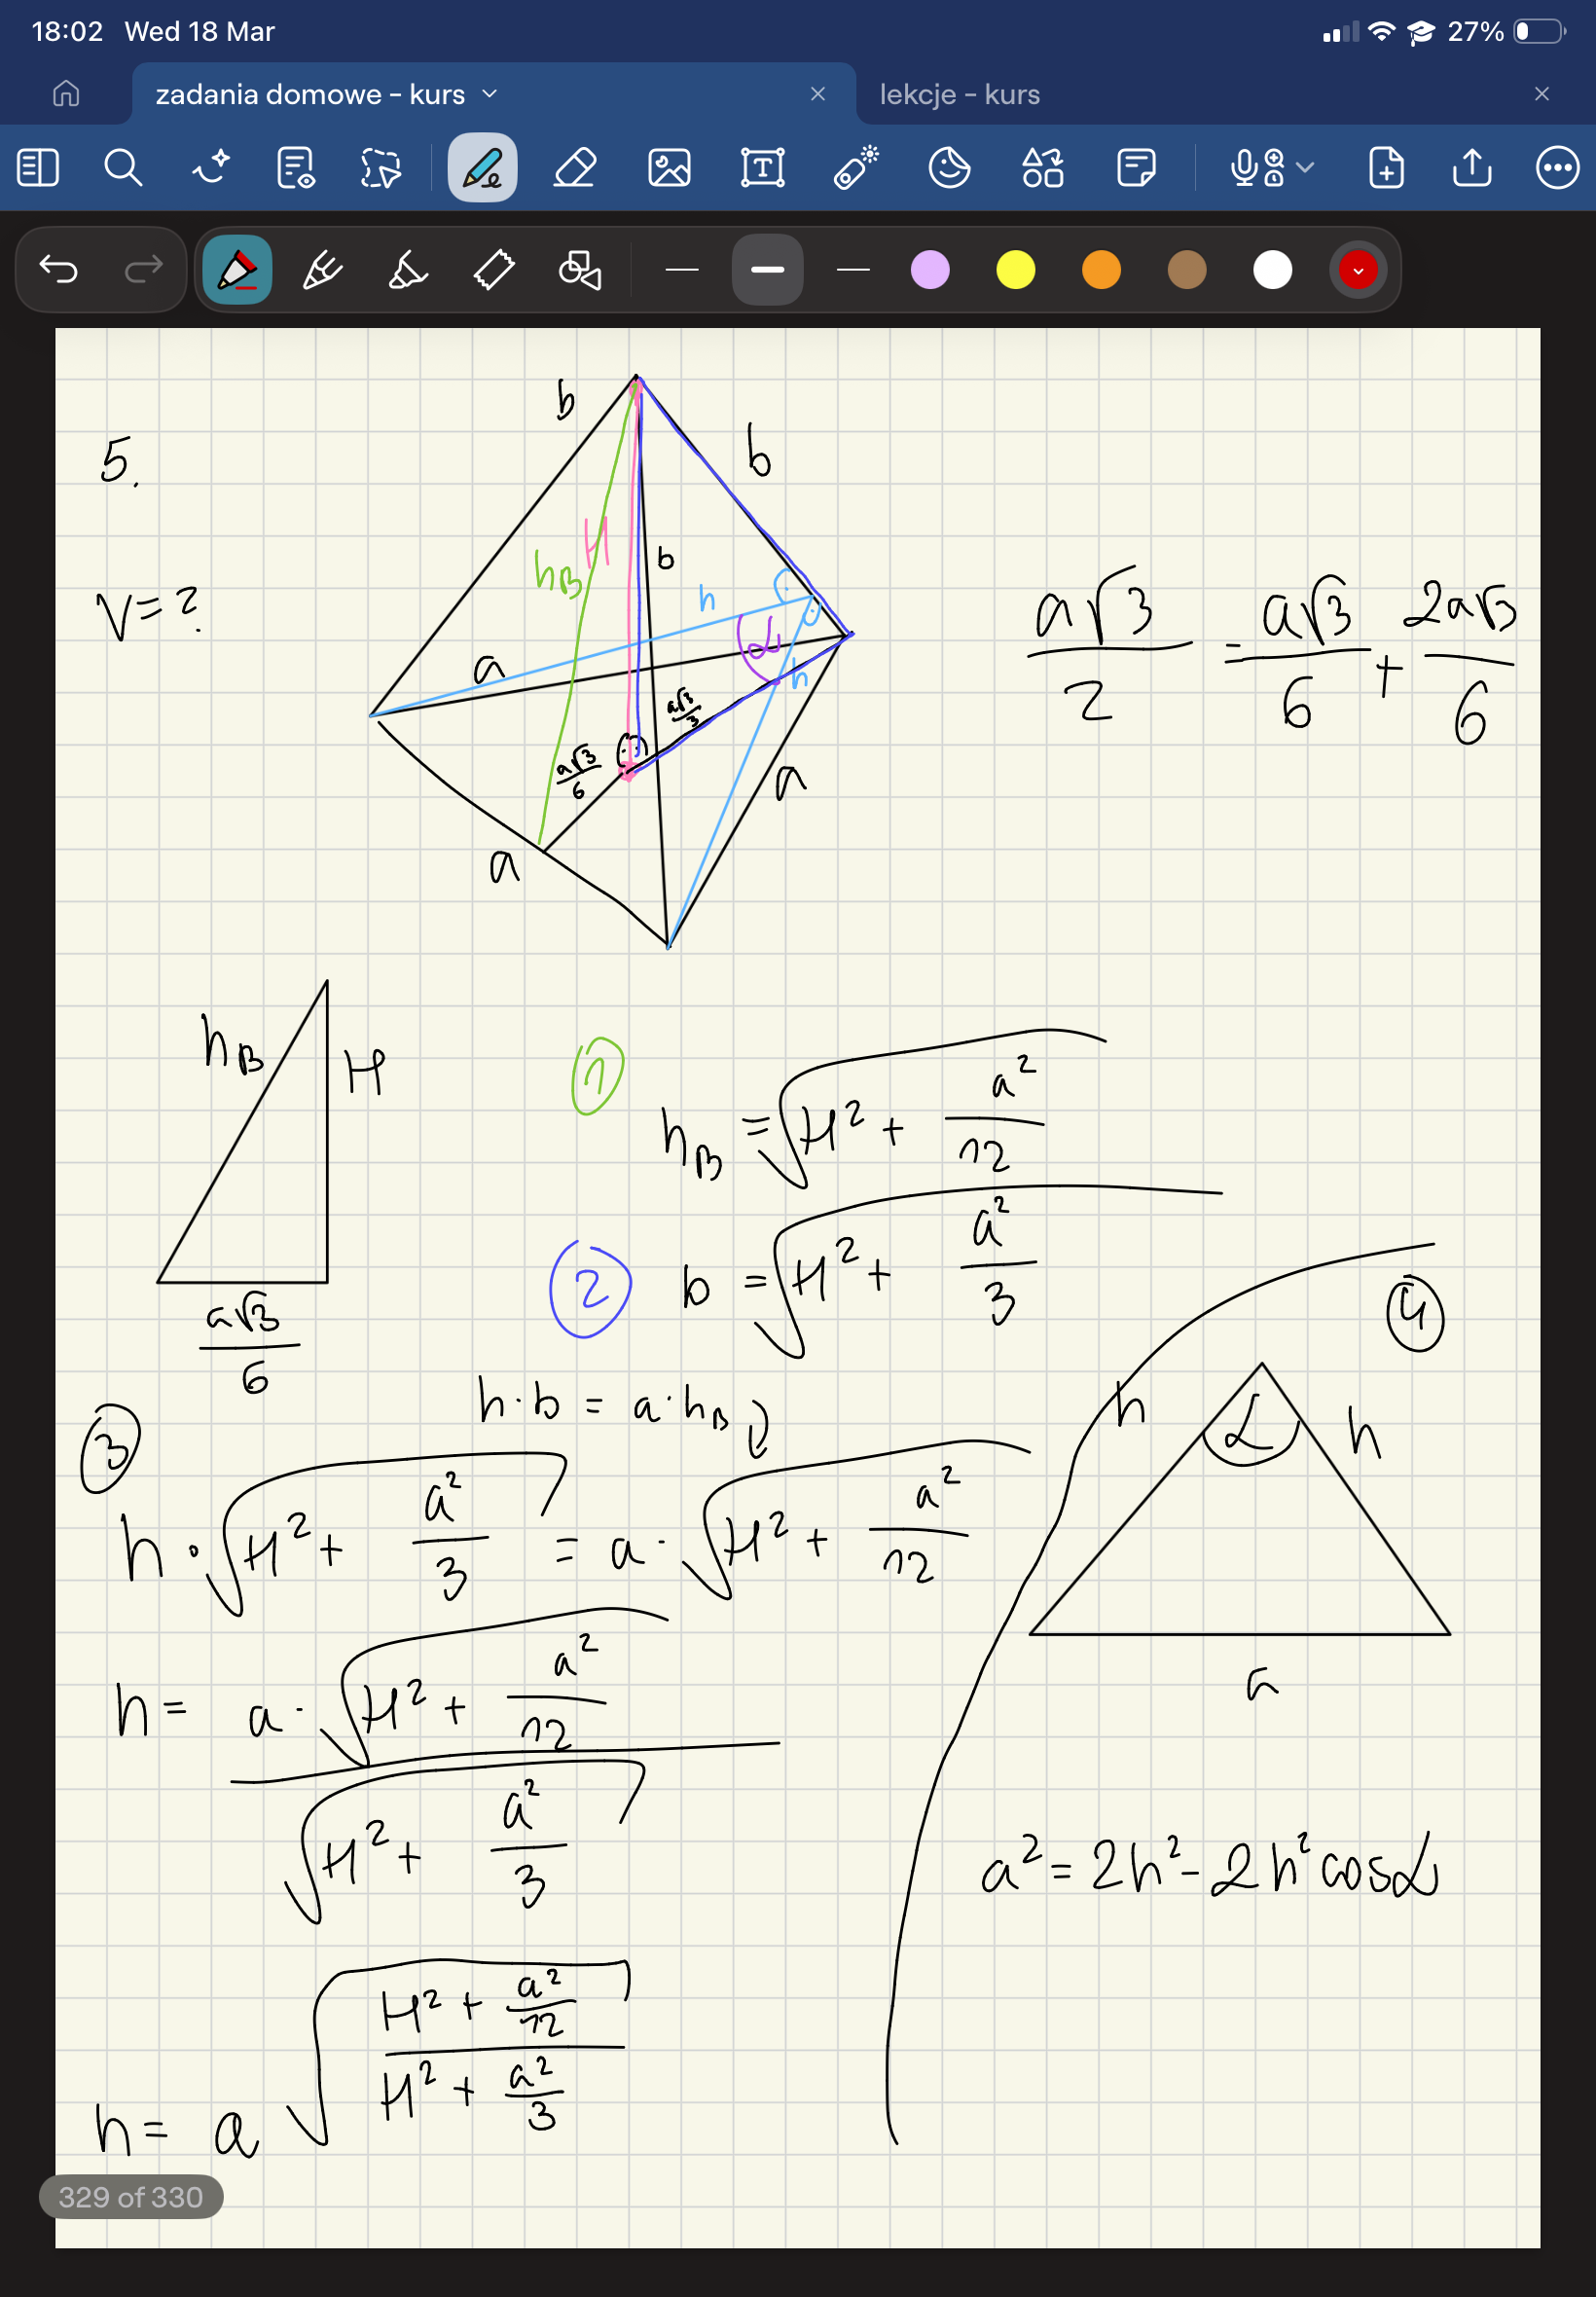 18:02 Wed 18 Mar
27%
zadania domowe – kurs
lekcje – kurs
5.
V = ?
b
b
b
h_B
H
h
α
h
a
a√3/3
a√3/6
a
a
a√3/2 = a√3/6 + 2a√3/6
h_B
H
a√3/6
① h_B = √(H² + a²/12)
② b = √(H² + a²/3)
③ h·b = a·h_B
h · √(H² + a²/3) = a · √(H² + a²/12)
h = a · √(H² + a²/12) / √(H² + a²/3)
h = a √((H² + a²/12) / (H² + a²/3))
④
h
α
h
a
a² = 2h² - 2h² cosα
329 of 330